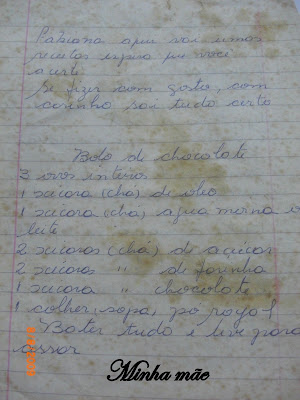 Fabiana aqui vai umas
receitas espero que você
acerte.
Se fizer com gosto, com
carinho sai tudo certo
Bolo de chocolate
3 ovos inteiros
1 xicara (chá) de óleo
1 xicara (cha) agua morna e
leite
2 xicaras (chá) de açúcar
2 xicaras " de farinha
1 xicara " chocolate
1 colher, sopa, po royal
Bater tudo e leve para
assar
Minha mãe